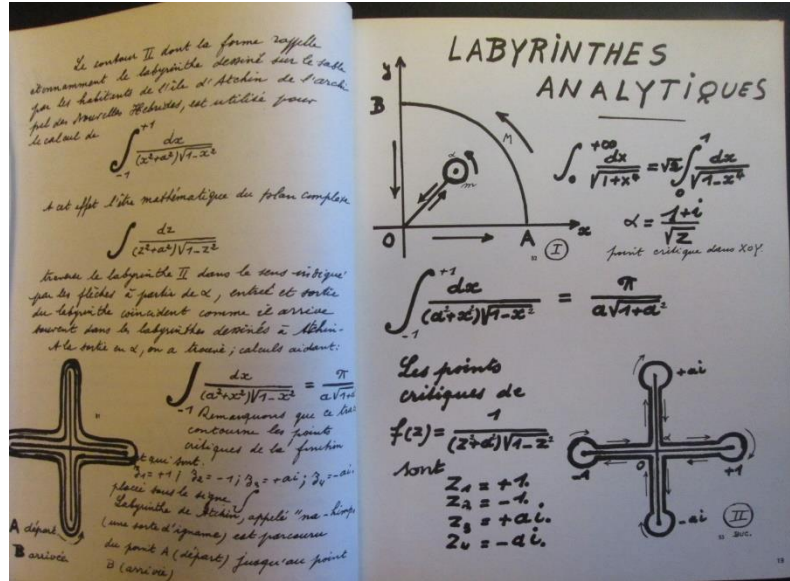 Le contour II dont la forme rappelle
étonnamment le labyrinthe dessiné sur le sable
par les habitants de l'île d'Atchin de l'archi
pel des Nouvelles Hébrides, est utilisé pour
le calcul de
∫_{-1}^{+1} dx / (x²+a²)√1-x²
A cet effet l'être mathématique du plan complexe
∫ dz / (z²+a²)√1-z²
traverse le labyrinthe II dans le sens indiqué
par les flèches à partir de α, entrée et sortie
du labyrinthe coïncident comme il arrive
souvent dans les labyrinthes dessinés à Atchin.
A la sortie en α, on a trouvé, calculs aidant:
∫_{-1} dx / (a²+x²)√1-x² = π / a√1+a
Remarquons que ce tra
contourne les points
critiques de la fonction
et qui sont:
z₁=+1; z₂=-1; z₃=+ai; z₄=-ai.
placée sous le signe ∫
Labyrinthe de Atchin, appelé "na-himp
(une sorte d'igname) est parcouru
du point A (départ) jusqu'au point
B (arrivée)
A départ
B arrivée
LABYRINTHES
ANALYTIQUES
y
B
M
α
m
O
A
x
I
∫_0^{+∞} dx / √1+x⁴ = √2 ∫_0^1 dx / √1-x⁴
α = 1+i / √2
point critique dans XOY.
∫_{-1}^{+1} dx / (a²+x²)√1-x² = π / a√1+a²
Les points
critiques de
f(z) = 1 / (z²+a²)√1-z²
sont
z₁ = +1.
z₂ = -1.
z₃ = +ai.
z₄ = -ai.
+ai
-1
O
+1
-ai
II
DUC.